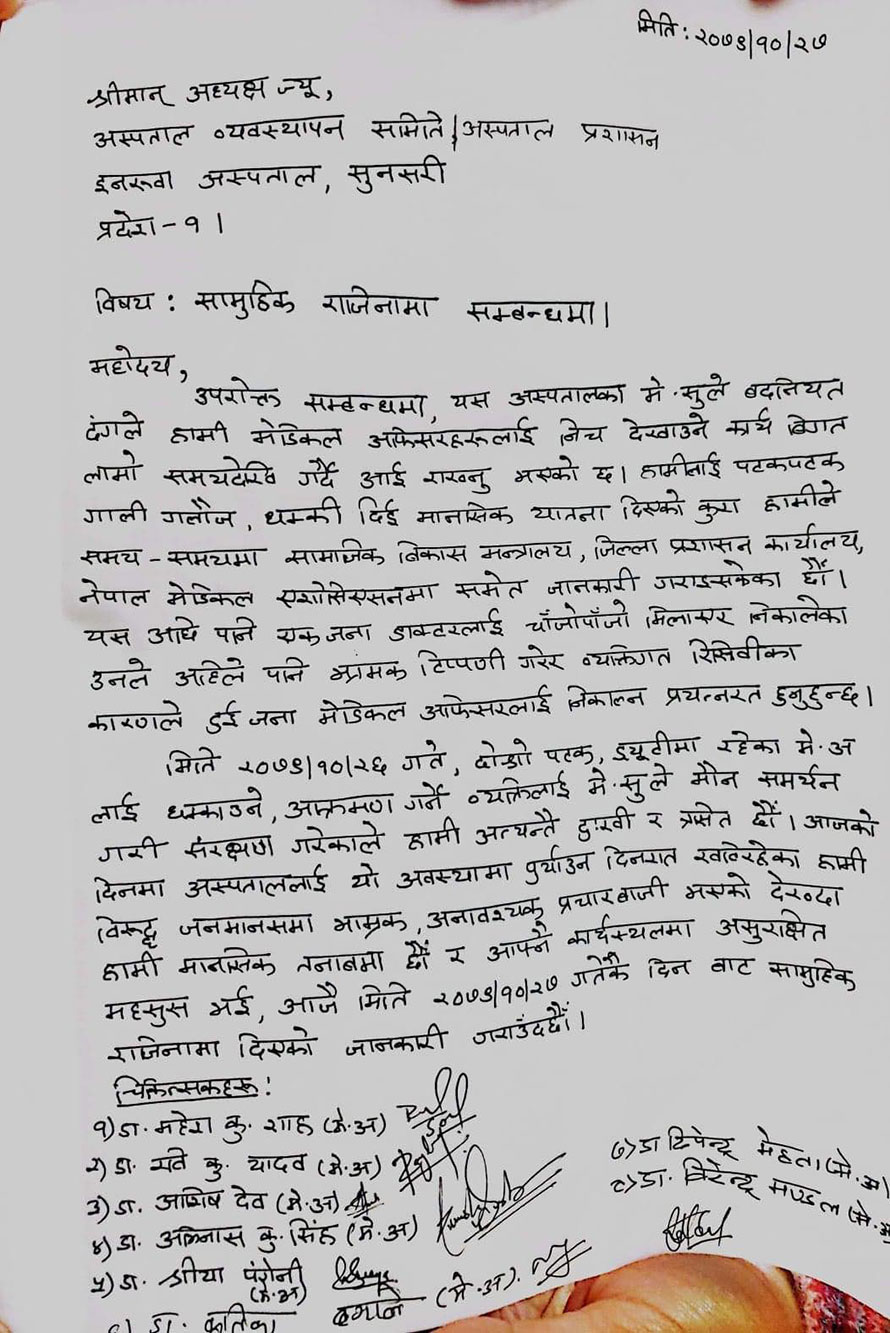 मिति: २०७९/१०/२७
श्रीमान् अध्यक्ष ज्यू,
अस्पताल व्यवस्थापन समिति/अस्पताल प्रशासन
इनरुवा अस्पताल, सुनसरी
प्रदेश-१।
विषय: सामुहिक राजिनामा सम्बन्धमा।
महोदय,
उपरोक्त सम्बन्धमा, यस अस्पतालका मे.सुले बदनियत
ढंगले हामी मेडिकल अफिसरहरूलाई निच देखाउने कार्य बिगत
लामो समयदेखि गर्दै आई राख्नु भएको छ। हामीलाई पटकपटक
गाली गलौज, धम्की दिई मानसिक यातना दिएको कुरा हामीले
समय-समयमा सामाजिक विकास मन्त्रालय, जिल्ला प्रशासन कार्यालय,
नेपाल मेडिकल एशोसिएसनमा समेत जानकारी गराइसकेका छौं।
यस अघि पनि एक जना डाक्टरलाई चाँजोपाँजो मिलाएर निकालेका
उनले अहिले पनि भ्रामक टिप्पणी गरेर व्यक्तिगत रिसिवीका
कारणले दुई जना मेडिकल अफिसरलाई निकाल्न प्रयत्नरत हुनुहुन्छ।
मिति २०७९/१०/२६ गते, दोस्रो पटक, ड्यूटीमा रहेका मे.अ
लाई धम्काउने, आक्रमण गर्ने व्यक्तिलाई मे.सुले मौन समर्थन
गरी संरक्षण गरेकाले हामी अत्यन्तै दुःखी र त्रसित छौं। आजको
दिनमा अस्पताललाई यो अवस्थामा पुर्याउन दिनरात खटिरहेका हामी
विरूद्ध जनमानसमा भाम्रक, अनावश्यक प्रचारबाजी भएको देख्दा
हामी मानसिक तनाबमा छौं र आफ्नै कार्यस्थलमा असुरक्षित
महसुस भई, आजै मिति २०७९/१०/२७ गतेकै दिन बाट सामुहिक
राजिनामा दिएको जानकारी गराउंदछौं।
चिकित्सकहरू:
१) डा. महेश कु. शाह (मे.अ)
२) डा. रवि कु. यादव (मे.अ)
३) डा. आशिष देव (मे.अ)
४) डा. अविनास कु. सिंह (मे.अ)
५) डा. श्रीया पंगेनी (मे.अ)
६) डा. कृतिका (मे.अ).
७) डा दिपेन्द्र मेहता (मे.अ)
८) डा. विरेन्द्र मण्डल (मे.अ